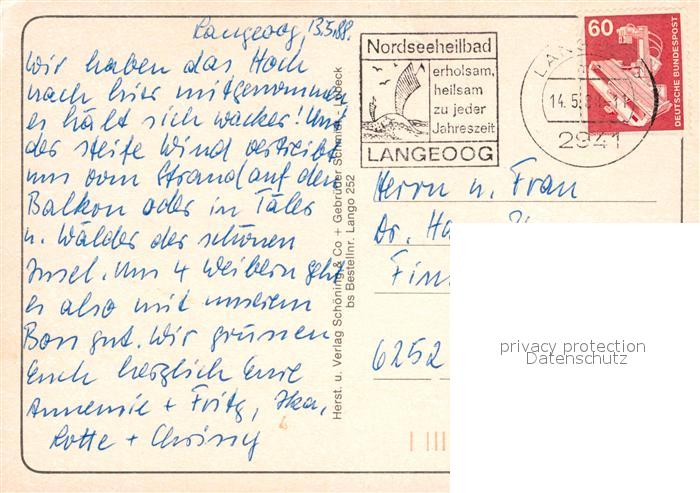 Langeoog, 13.5.88.
Wir haben das Hoch
nach hier mitgenommen
es hält sich wacker! Nur
der steife Wind vertreibt
uns vom Strand auf den
Balkon oder in Täler
u. Wälder der schönen
Insel. Uns 4 Weibern geht
es also mit unserem
Boss gut. Wir grüssen
Euch herzlich Eure
Annemie + Fritz, Ilka,
Lotte + Chrissy
Herst. u. Verlag Schöning & Co + Gebrüder Schmidt, Lübeck
bs Bestellnr. Lango 252
Nordseeheilbad
erholsam,
heilsam
zu jeder
Jahreszeit
LANGEOOG
14.5.
2941
60
DEUTSCHE BUNDESPOST
Herrn u. Frau
Dr.
6252
privacy protection
Datenschutz